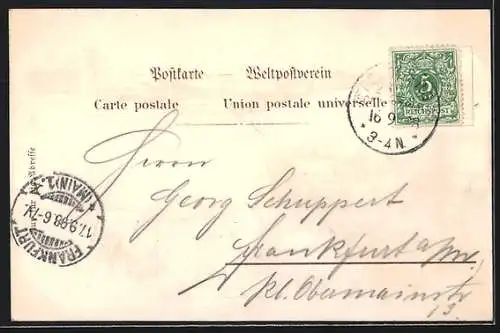 Postkarte — Weltpostverein
Carte postale Union postale universelle
5
REICHSPOST
16 9
3-4N
Herrn
Georg Schuppert
Frankfurt a/M.
kl. Obermainstr
13.
FRANKFURT
(MAIN) 1
17.9.98. 6-7V.